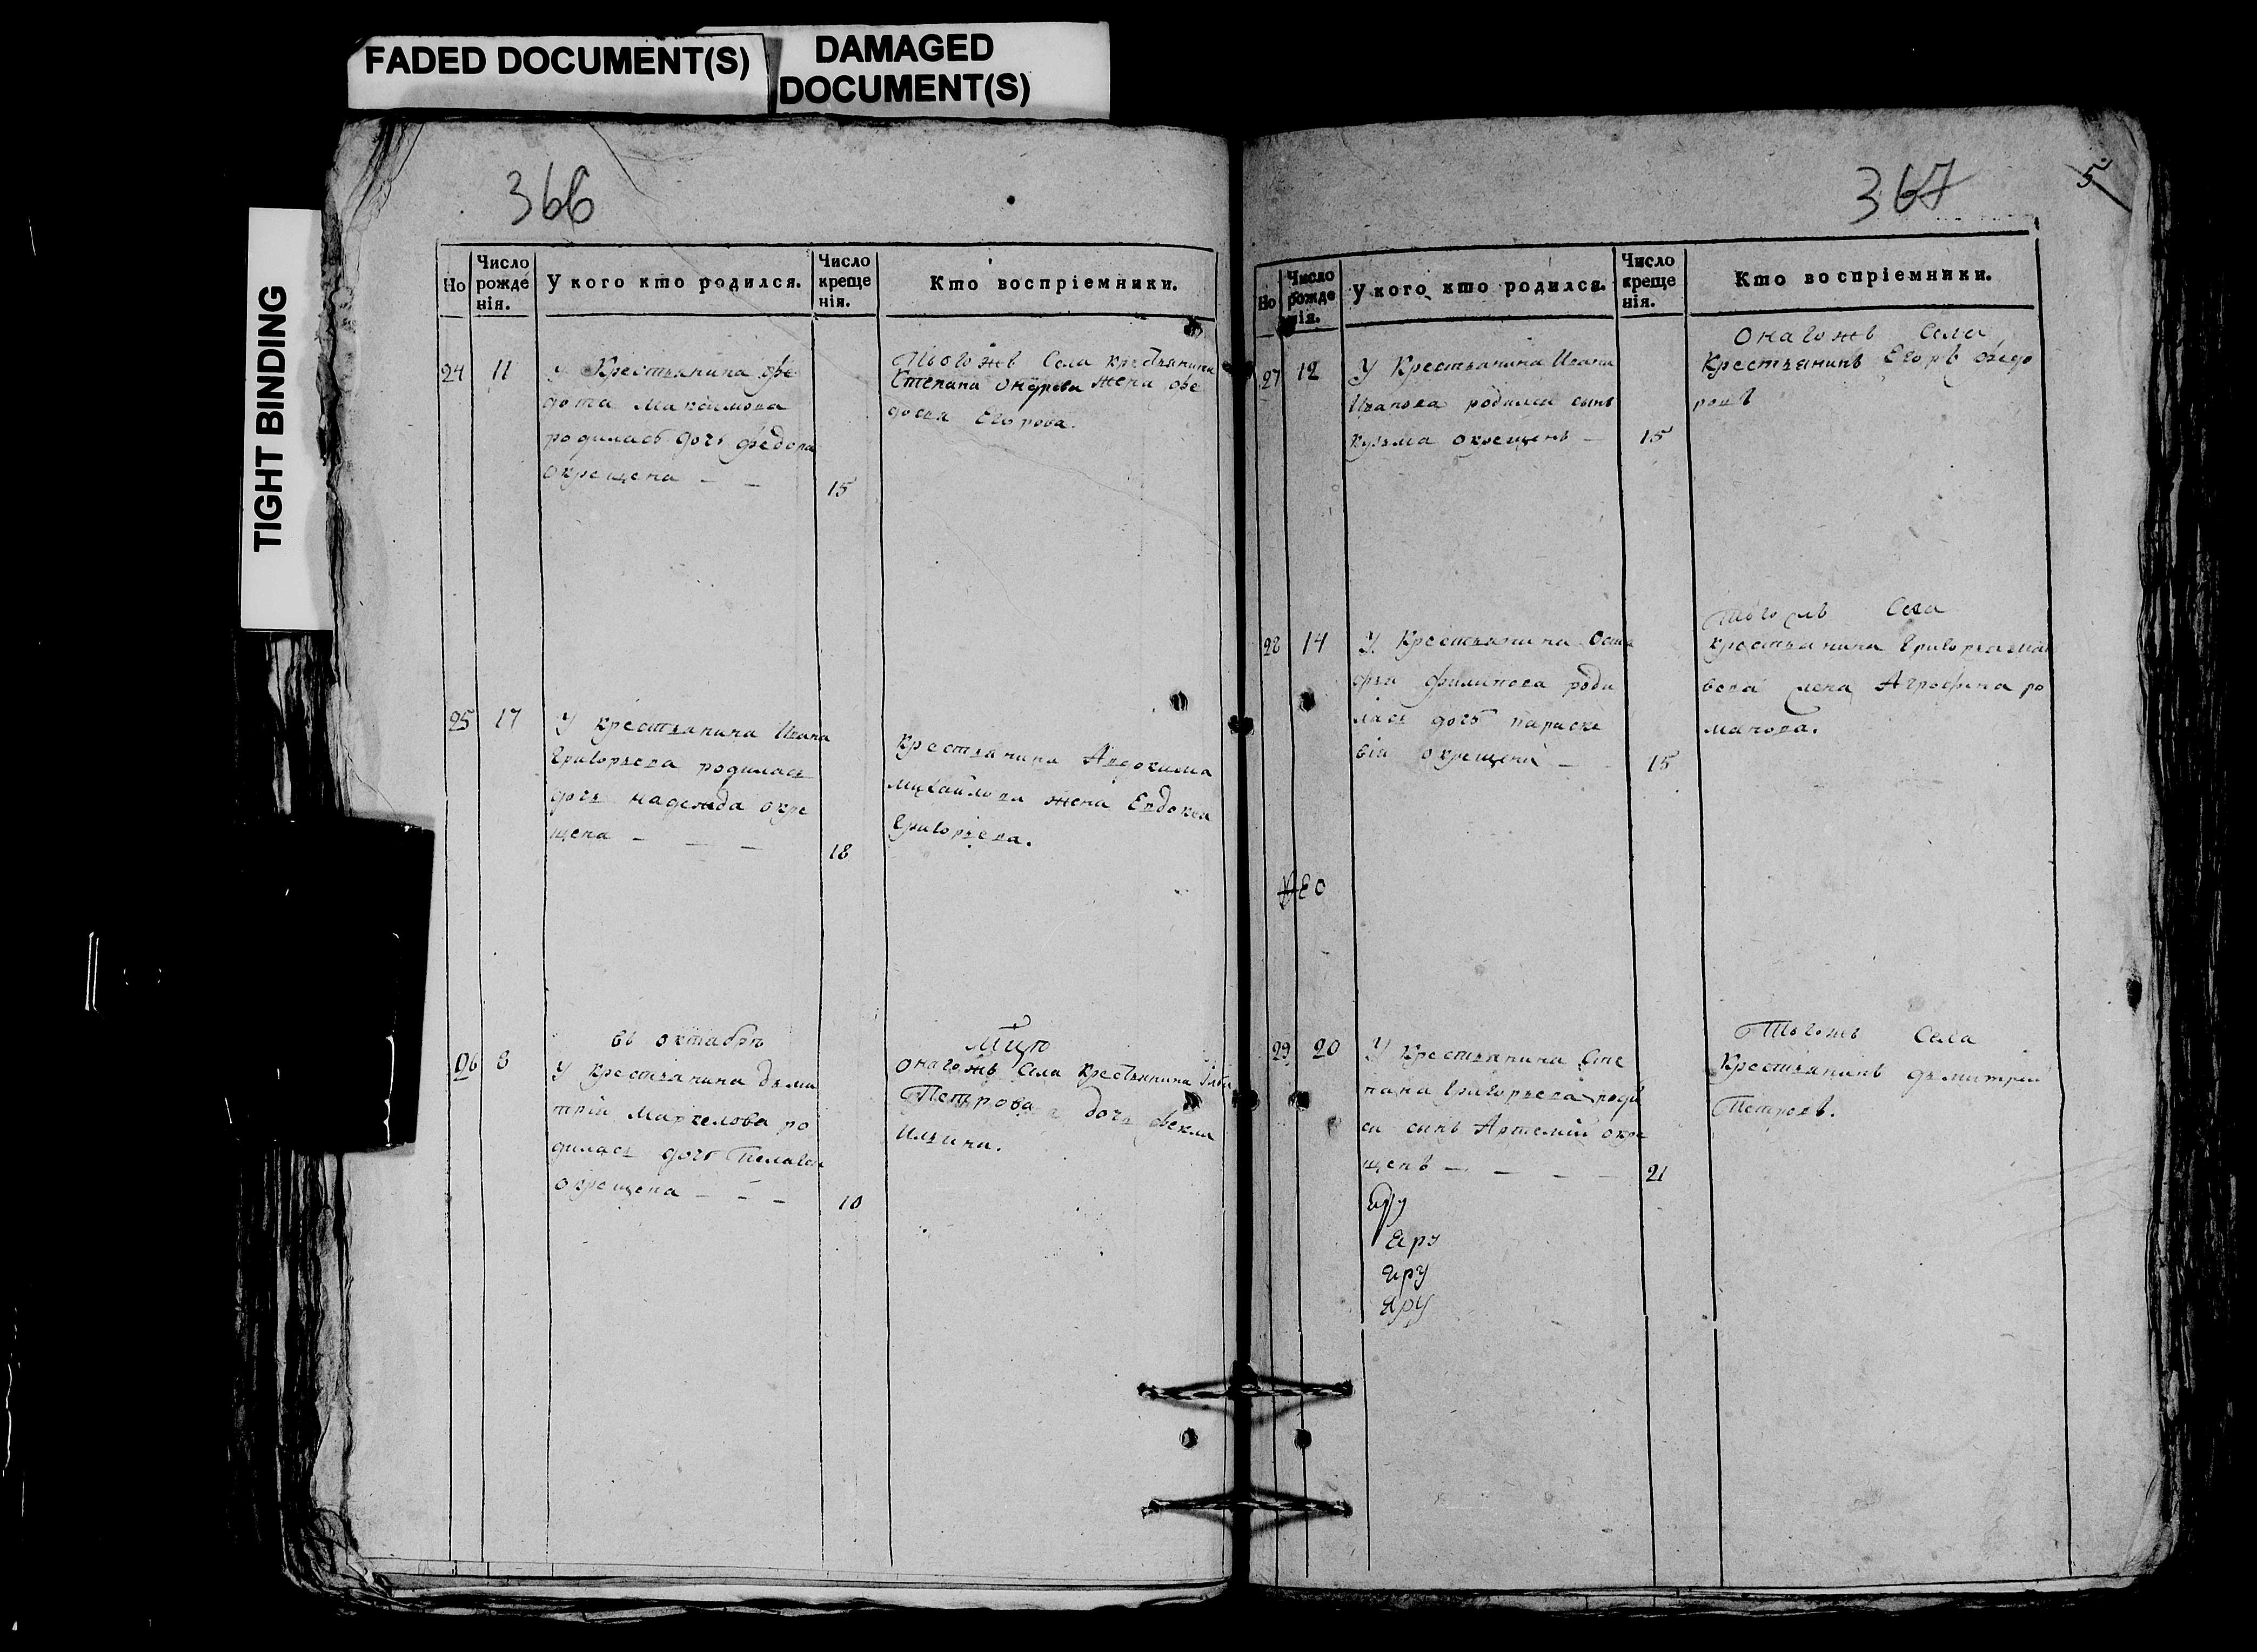 FADED DOCUMENT(S)
DAMAGED
DOCUMENT(S)
TIGHT BINDING
366
Но
Число
рожде
нія.
У кого кто родился.
Число
креще
нія.
Кто воспріемники.
24 11
У Крестьянина Фе
дота Максимова
родилась дочь Федора
окрещена — —
15
Тогожъ Села крестьянина
Степана Ондреева жена Фе
досья Егорова.
25 17
У крестьянина Ивана
Григорьева родилась
дочь надежда окре
щена — — —
18
крестьянина Авдокима
михайлова жена Евдокея
Григорьева.
въ октябрѣ
26 8
У крестьянина дъми
трія Маркелова ро
дилась дочь Пелагея
окрещена — — —
10
онагожъ Села крестьянина
Петрова дочь Фекла
Ильина.
367
5
Но
Число
рожде
нія.
У кого кто родился.
Число
креще
нія.
Кто воспріемники.
27 12
У Крестьянина Ивана
Иванова родился сынъ
кузьма окрещенъ —
15
Онагожъ Села
крестьянинъ Егоръ Федо
ровъ
28 14
У Крестьянина Оста
фья филипова роди
лась дочь параске
вія окрещена —
15
Тогожъ Села
крестьянина Григорья
жена Агрофена ро
манова.
29 20
У Крестьянина Сте
пана Григорьева роди
ся сынъ Артемій окре
щенъ — — — —
21
Тогожъ Села
Крестьянинъ дъмитрей
Петровъ.